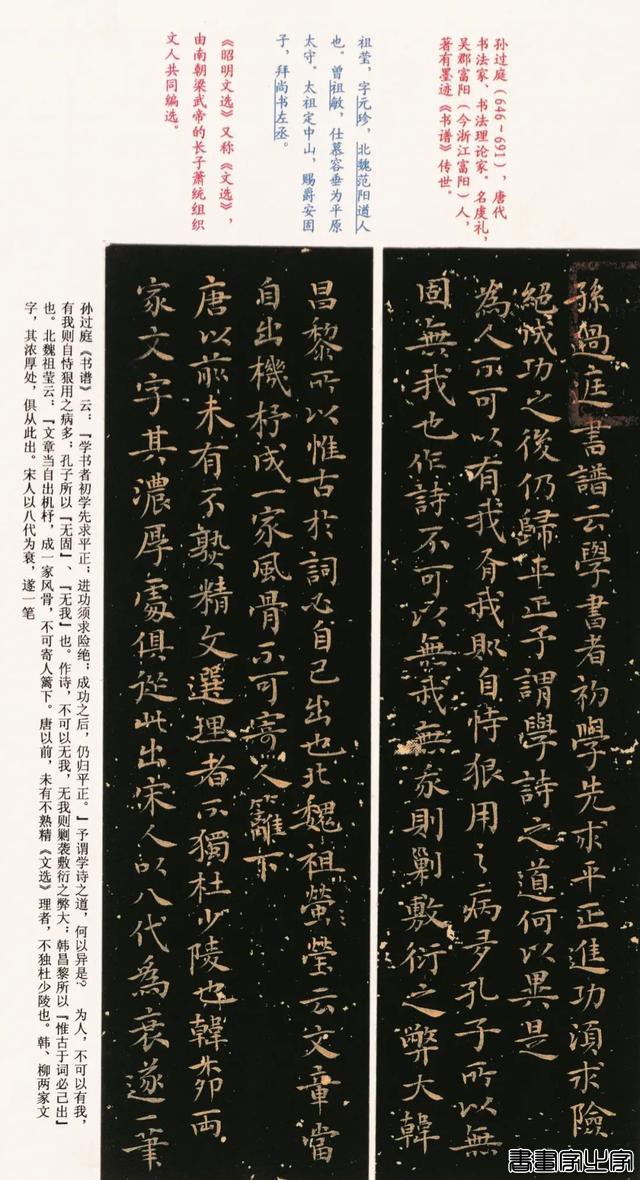 孙过庭（646~691），唐代
书法家、书法理论家。名虔礼，
吴郡富阳（今浙江富阳）人，
著有墨迹《书谱》传世。
祖莹，字元珍，北魏范阳道人
也。曾祖敏，仕慕容垂为平原
太守。太祖定中山，赐爵安固
子，拜尚书左丞。
《昭明文选》又称《文选》，
由南朝梁武帝的长子萧统组织
文人共同编选。
孫過庭書譜云學書者初學先求平正進功須求險
絕成功之後仍歸平正予謂學詩之道何以異是
為人不可以有我有我則自恃狠用之病多孔子所以無
固無我也作詩不可以無我無我則剿敷衍之弊大韓
昌黎所以惟古於詞必自己出也北魏祖螢瑩云文章當
自出機杼成一家風骨不可寄人籬下
唐以前未有不熟精文選理者不獨杜少陵也韓柳兩
家文字其濃厚處俱從此出宋人以八代為衰遂一筆
孙过庭《书谱》云：『学书者初学先求平正；进功须求险绝；成功之后，仍归平正。』予谓学诗之道，何以异是？ 为人，不可以有我，
有我则自恃狠用之病多；孔子所以『无固』、『无我』也。作诗，不可以无我，无我则剿袭敷衍之弊大；韩昌黎所以『惟古于词必己出』
也。北魏祖莹云：『文章当自出机杼，成一家风骨，不可寄人篱下。唐以前，未有不熟精《文选》理者，不独杜少陵也。韩、柳两家文
字，其浓厚处，俱从此出。宋人以八代为衰，遂一笔